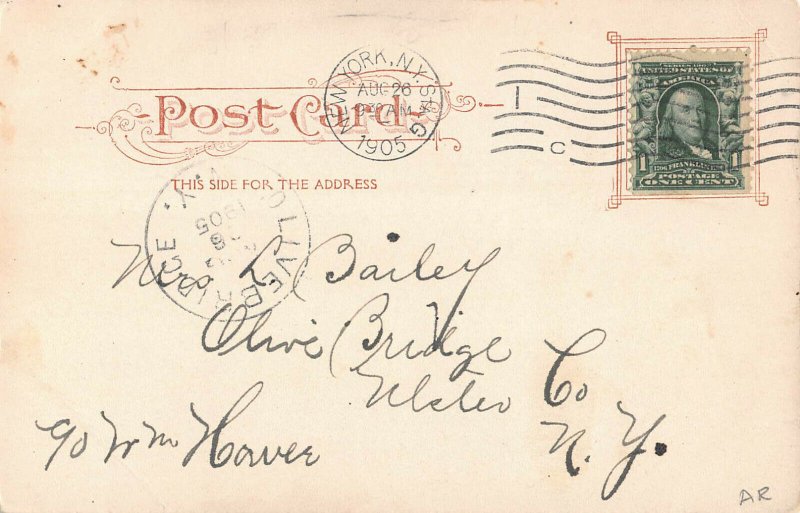 Post Card
THIS SIDE FOR THE ADDRESS
NEW YORK, N.Y.
AUG 26
AM
1905
C
SERIES 1902
UNITED STATES OF AMERICA
1 1
FRANKLIN
POSTAGE
ONE CENT
OLIVEBRIDGE N.Y.
1905
Mrs L. Bailey
Olive Bridge
Ulster Co
N.Y.
AR